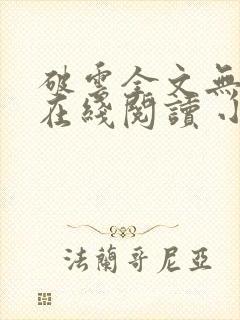 破雲全文無
在綫閱讀 小
法蘭哥尼亞